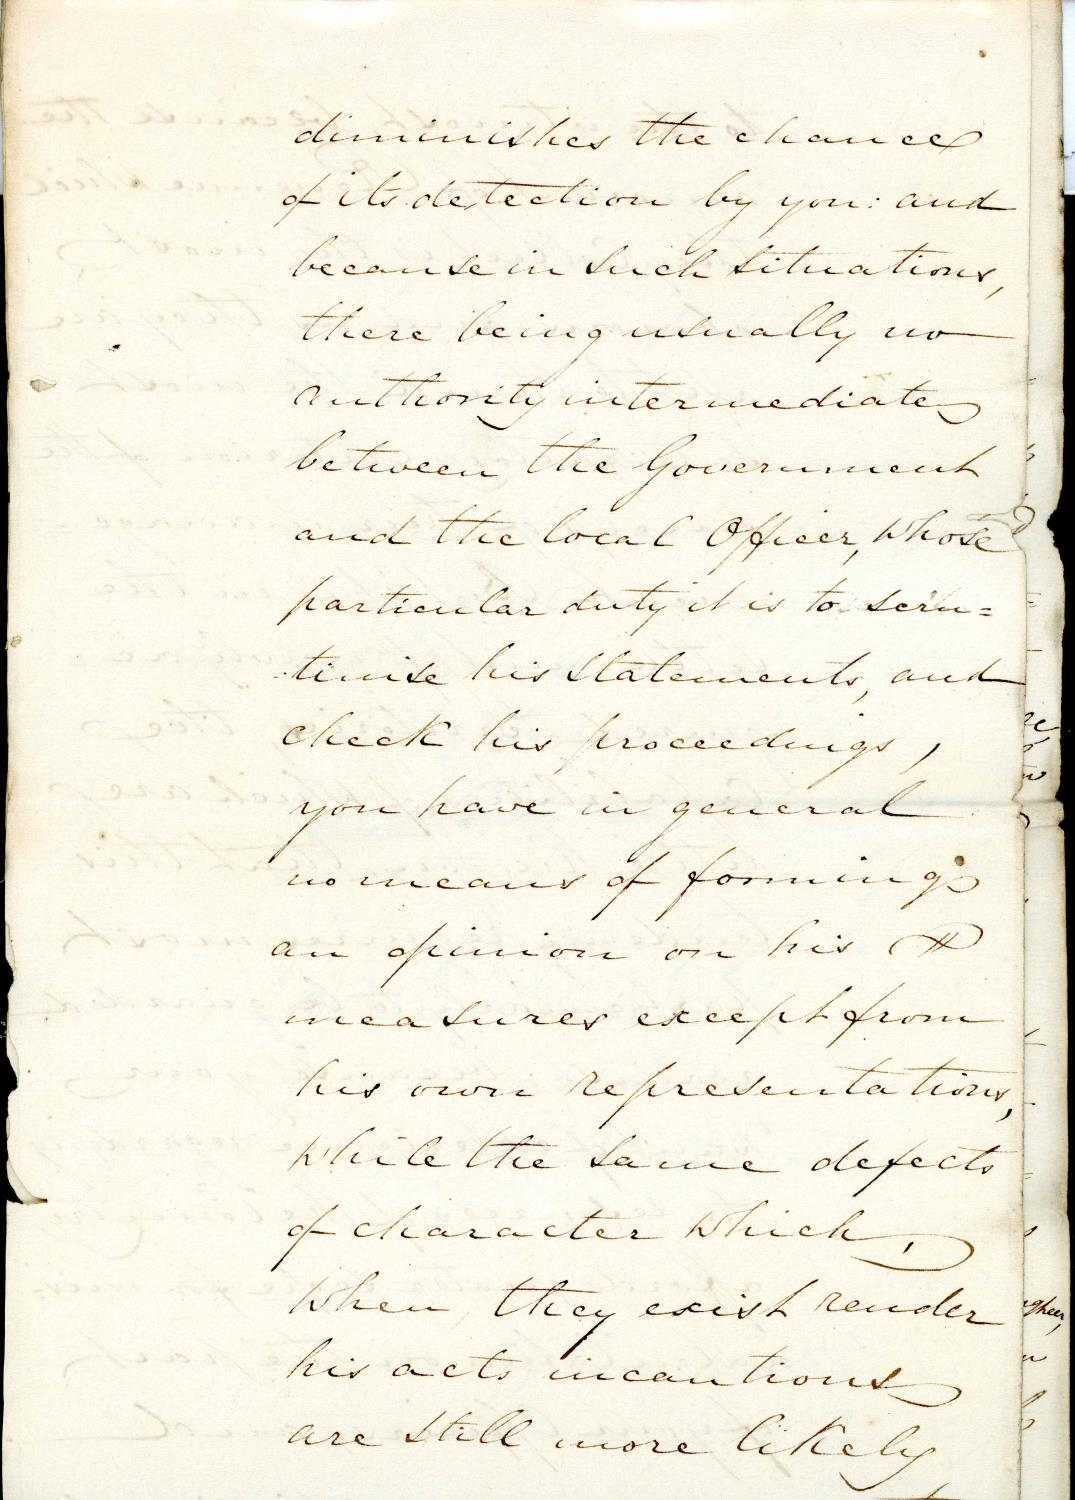 diminishes the chance
of its detection by you: and
because in such situations,
there being usually no
authority intermediate
between the Government
and the local Officer, whose
particular duty it is to scru=
tinise his statements, and
check his proceedings,
you have in general
no means of forming
an opinion on his
measures except from
his own representations,
while the same defects
of character which,
when they exist render
his acts incautious
are still more likely